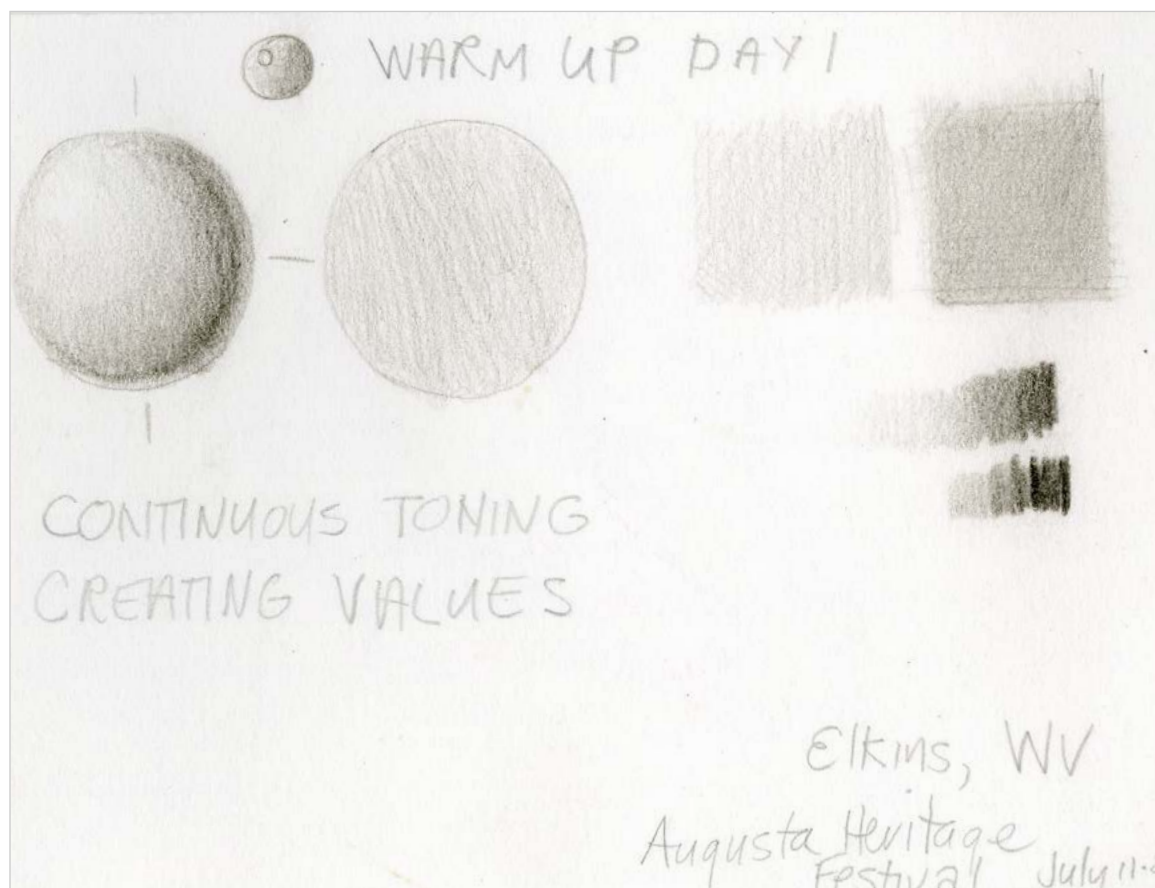 WARM UP DAY 1
CONTINUOUS TONING
CREATING VALUES
Elkins, WV
Augusta Heritage
Festival July 11-